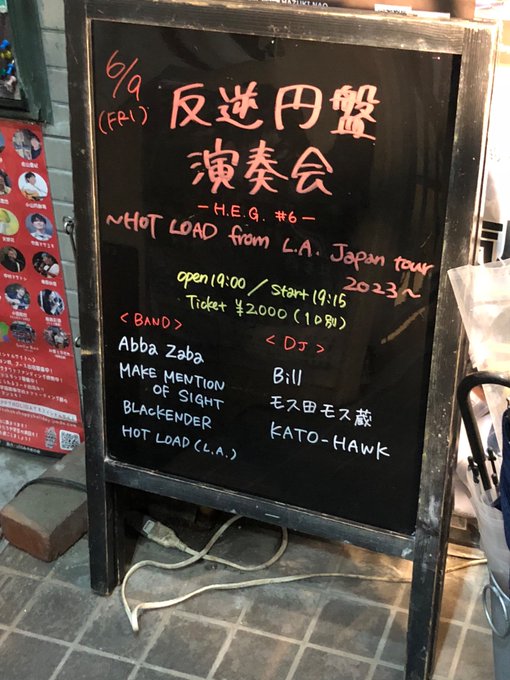 HAZUKI NAO
6/9
(FRI)
反逆円盤
演奏会
-H.E.G. #6-
~HOT LOAD from L.A. Japan tour
2023~
open19:00/start 19:15
Ticket ¥2000(1D別)
<BAND>
Abba Zaba
MAKE MENTION
OF SIGHT
BLACKENDER
HOT LOAD (L.A.)
<DJ>
Bill
モス田モス蔵
KATO-HAWK